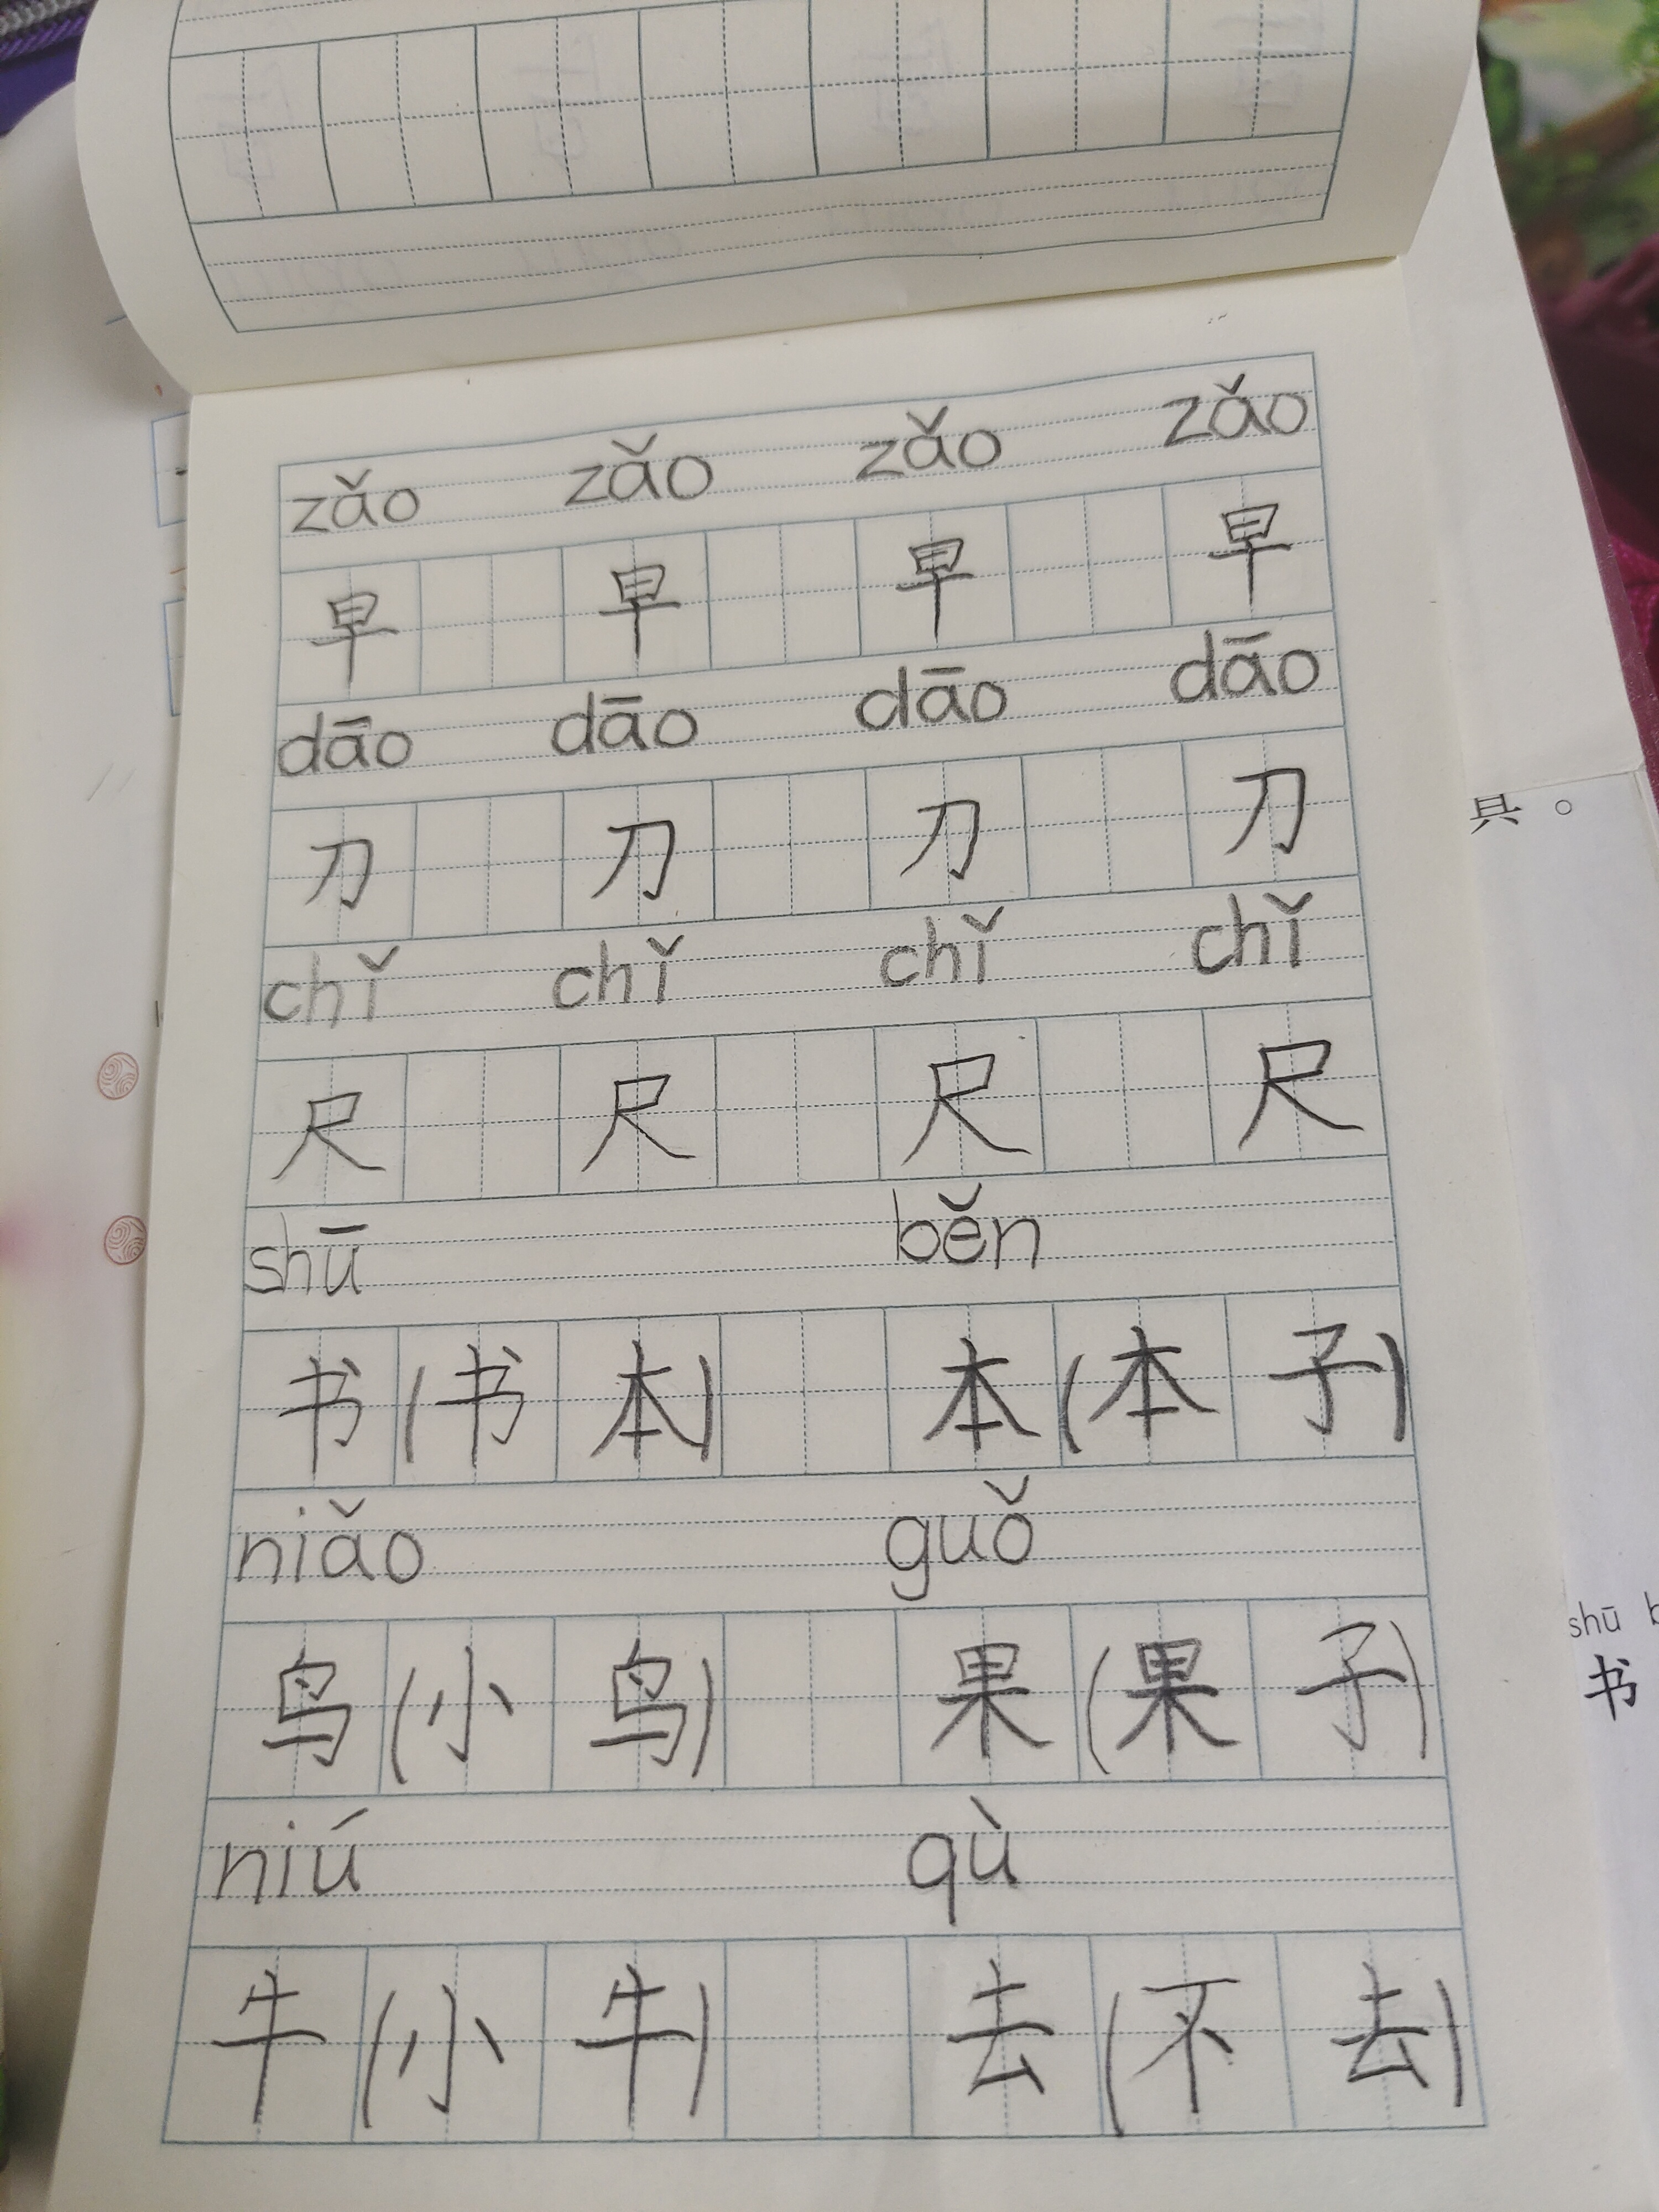 zǎo zǎo zǎo zǎo
早 早 早 早
dāo dāo dāo dāo
刀 刀 刀 刀
chǐ chǐ chǐ chǐ
尺 尺 尺 尺
shū běn
书(书本) 本(本子)
niǎo guǒ
鸟(小鸟) 果(果子)
niú qù
牛(小牛) 去(不去)
。
shū
书